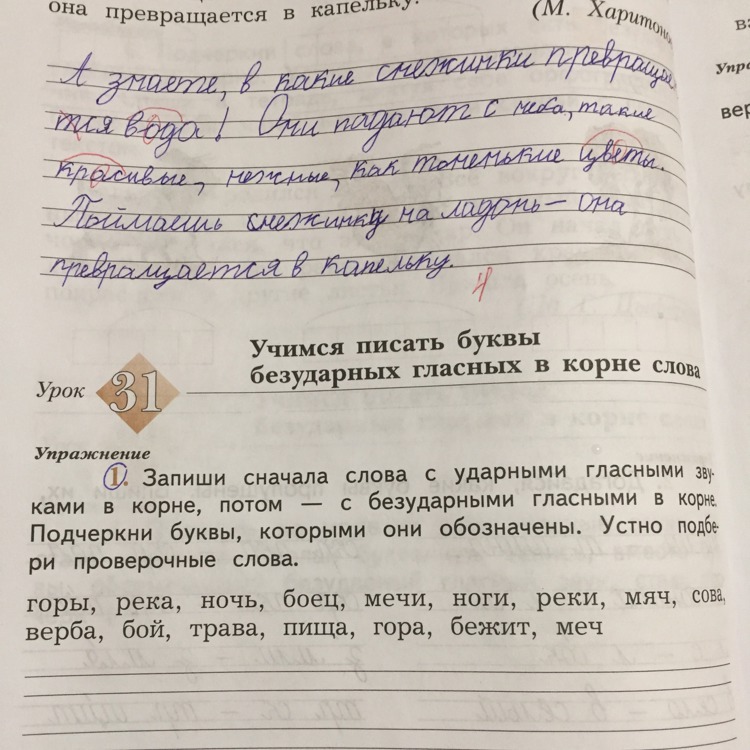 она превращается в капельку.
(М. Харитон
А знаете, в какие снежинки превраща
тся вода! Они падают с неба, такие
красивые, нежные, как тоненькие цветы.
Поймаешь снежинку на ладонь – она
превращается в капельку.
4
Учимся писать буквы
безударных гласных в корне слова
Урок 31
Упражнение
1. Запиши сначала слова с ударными гласными зву-
ками в корне, потом — с безударными гласными в корне.
Подчеркни буквы, которыми они обозначены. Устно подбе-
ри проверочные слова.
горы, река, ночь, боец, мечи, ноги, реки, мяч, сова,
верба, бой, трава, пища, гора, бежит, меч
Упра
вер